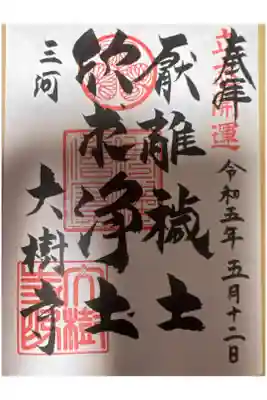 奉拝
立志開運
令和五年五月十二日
厭離穢土
欣求浄土
三河
大樹寺